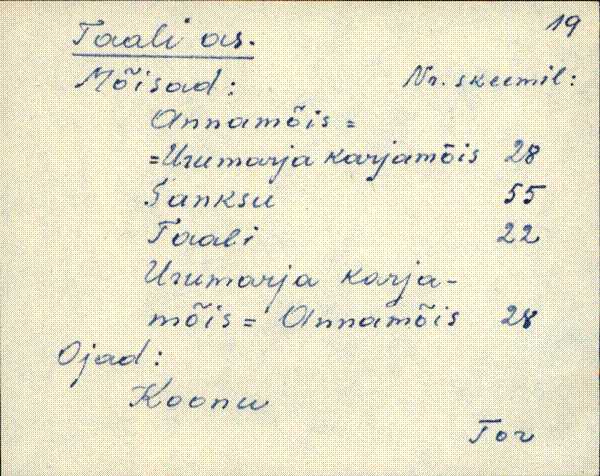 19
Taali as.
Mõisad: Nr. skeemil:
Annamõis =
= Urumarja karjamõis 28
Sanksu 55
Taali 22
Urumarja karja-
mõis = Annamõis 28
Ojad:
Koonu
Tor